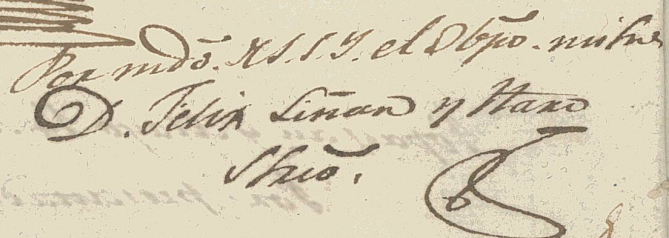 Por mdō. de S.S.Y. el Obpō. mi Sr
D. Felix Liñan y Haro
Srīo.